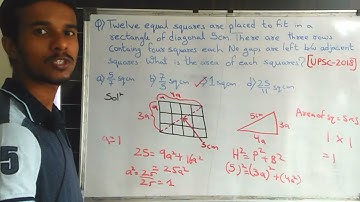 Q) Twelve equal squares are placed to fit in a
rectangle of diagonal 5cm. There are three rows
containg four squares each. No gaps are left b/w adjacent
squares. What is the area of each squares? [UPSC-2018]
a) 5/7 sq cm b) 7/5 sq cm c) 1 sq cm d) 25/11 sq cm
Sol:
a 4a
a
3a
a=1
5cm 3a
4a
Area of sq = S×S
1 × 1
= 1
25 = 9a²+16a²
25 = 25a²
a² = 25/25 = 1
H² = P² + B²
(5)² = (3a)² + (4a)²
5